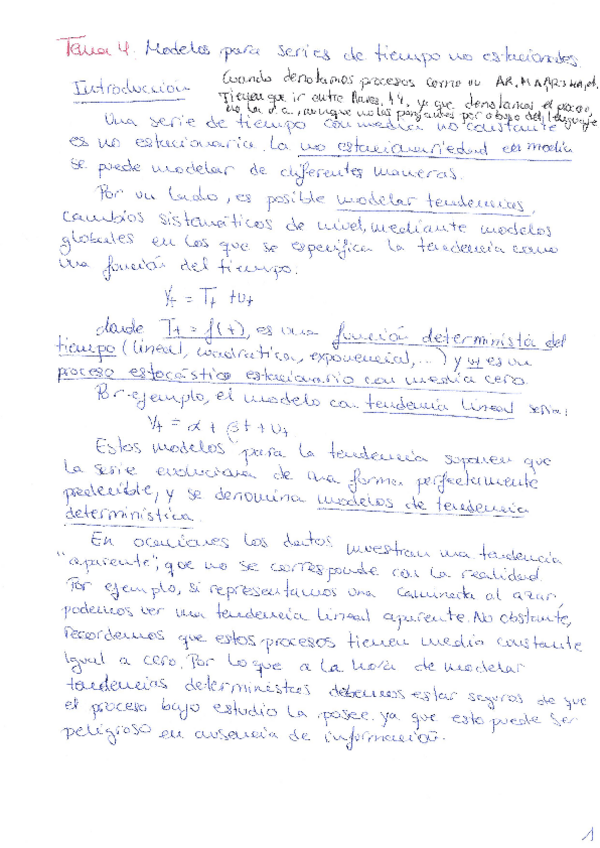 Tema 4. Modelos para series de tiempo no estacionales.
Introducción
Cuando denotamos procesos como un AR, MA, ARMA, et.
Tienen que ir entre llaves {}, ya que denotamos el proceso,
no la v.a, aunque no las pongamos por abuso del lenguaje
Una serie de tiempo con media no constante
es no estacionaria. La no estacionariedad en media
se puede modelar de diferentes maneras.
Por un lado, es posible modelar tendencias,
cambios sistemáticos de nivel, mediante modelos
globales en los que se especifica la tendencia como
una función del tiempo:
Yt = Tt + ut
donde Tt = f(t), es una función determinista del
tiempo (lineal, cuadratica, exponencial, ...) y ut es un
proceso estocástico estacionario con media cero.
Por ejemplo, el modelo con tendencia lineal sería:
Yt = α + βt + ut
Estos modelos para la tendencia suponen que
la serie evoluciona de una forma perfectamente
predecible, y se denomina modelos de tendencia
determinística.
En ocasiones los datos muestran una tendencia
"aparente", que no se corresponde con la realidad.
Por ejemplo, si representamos una caminata al azar,
podemos ver una tendencia lineal aparente. No obstante,
recordemos que estos procesos tienen media constante
igual a cero. Por lo que a la hora de modelar
tendencias deterministas debemos estar seguros de que
el proceso bajo estudio la posee, ya que esto puede ser
peligroso en ausencia de información.
1